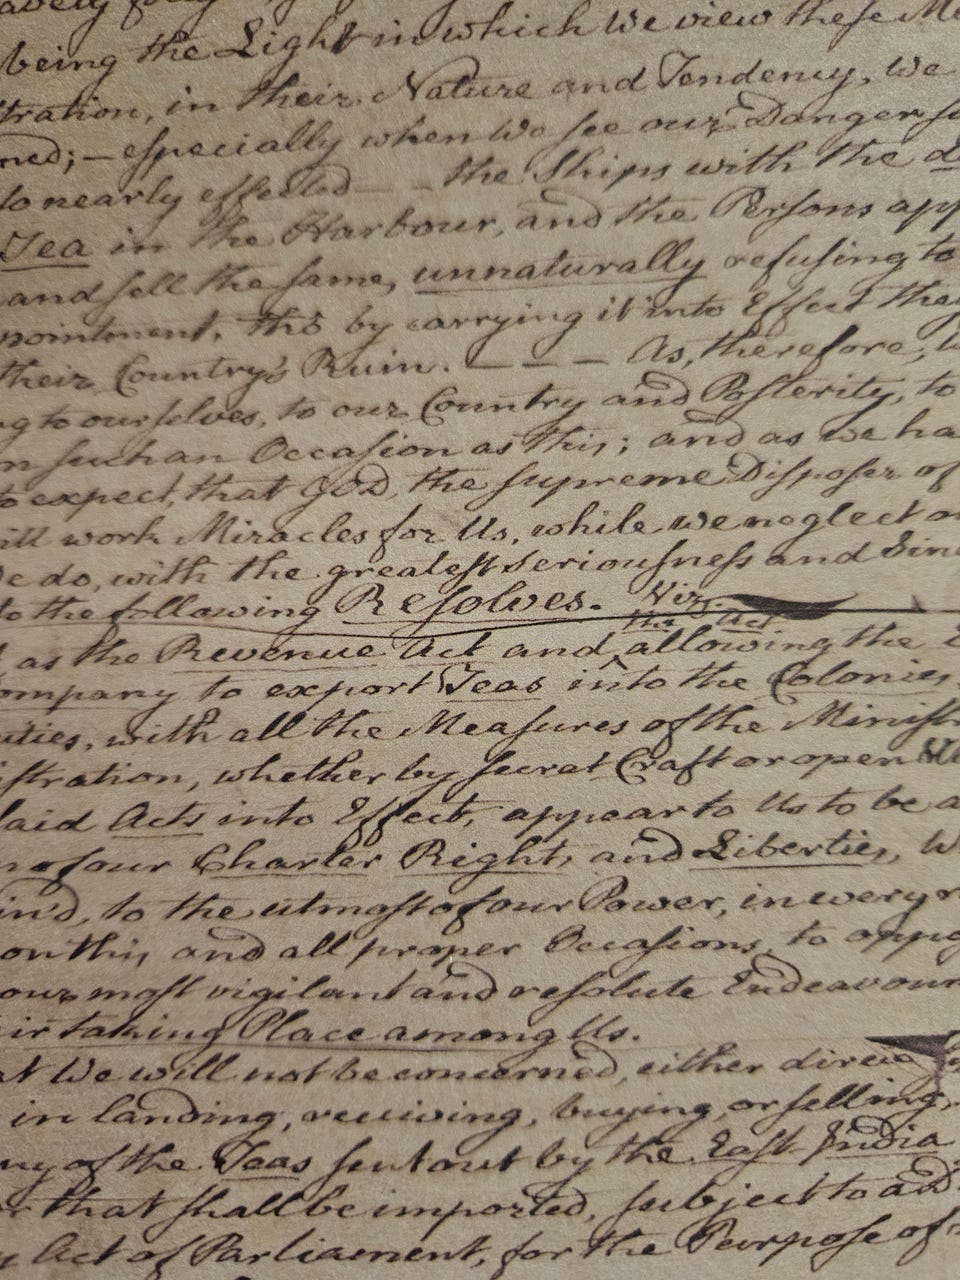 being the Light in which We view these Me
stration, in their Nature and Tendency, We
ned; — especially when We see our Danger so
to nearly effected — — the Ships with the
Tea in the Harbour, and the Persons app
and sell the same, unnaturally refusing to
pointment, tho by carrying it into Effect they
their Country's Ruin. — — — As, therefore, w
ng to ourselves, to our Country and Posterity, to
n such an Occasion as this; and as we ha
to expect, that GOD, the supreme Disposer of
ill work Miracles for Us, while we neglect o
We do, with the greatest seriousness and Sinc
to the following Resolves. Viz.
the Act
as the Revenue Act and ^ allowing the E
ompany to export Teas into the Colonies,
uties, with all the Measures of the Ministr
istration, whether by secret Craft or open
said Acts into Effect, appear to Us to be a
n of our Charter Rights and Liberties, W
in'd, to the utmost of our Power, in every r
on this, and all proper Occasions, to oppo
our most vigilant and resolute Endeavour
eir taking Place among Us.
at We will not be concerned, either direc
in landing, receiving, buying, or selling,
ny of the Teas sent out by the East India
that shall be imported, subject to a
y Act of Parliament, for the Purpose of